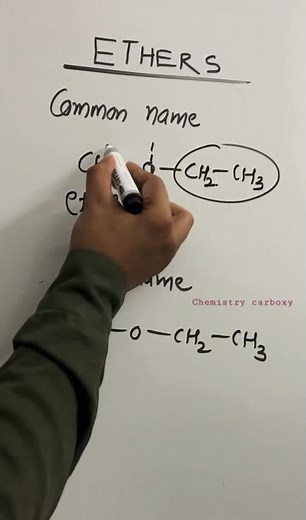 ETHERS
Common name
O — CH₂ — CH₃
Chemistry carboxy
— O — CH₂ — CH₃